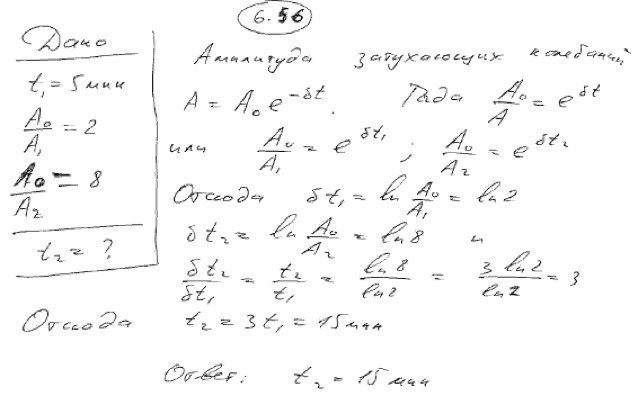 6.56
Дано
t₁ = 5 мин
A₀/A₁ = 2
A₀/A₂ = 8
t₂ = ?
Амплитуда затухающих колебаний
A = A₀e^(-δt). Тогда A₀/A = e^(δt)
или A₀/A₁ = e^(δt₁) ; A₀/A₂ = e^(δt₂)
Отсюда δt₁ = ln A₀/A₁ = ln2
δt₂ = ln A₀/A₂ = ln8 и
δt₂/δt₁ = t₂/t₁ = ln8/ln2 = 3 ln2/ln2 = 3
Отсюда t₂ = 3t₁ = 15 мин
Ответ: t₂ = 15 мин